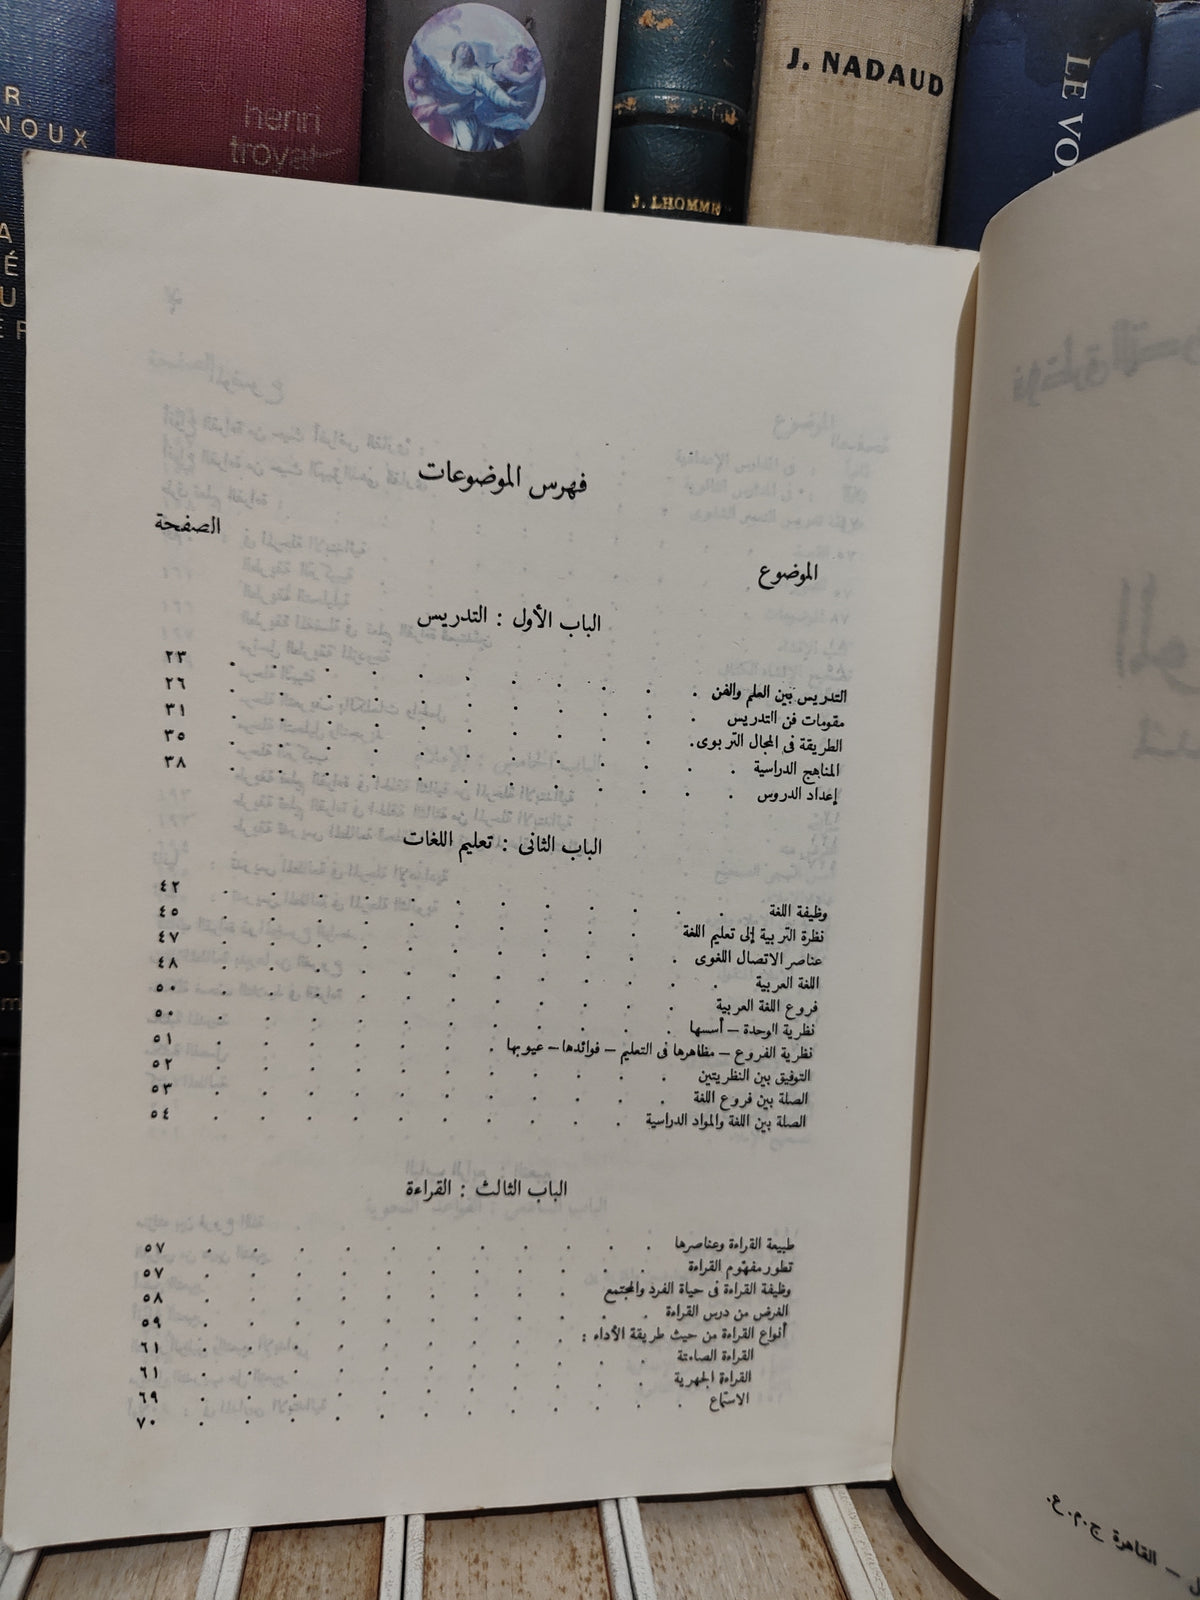 R.
NOUX
henri
troyat
J. LHOMME
J. NADAUD
LE VO
فهرس الموضوعات
الموضوع الصفحة
الباب الأول : التدريس
التدريس بين العلم والفن . . . . . . . . . ٢٣
مقومات فن التدريس . . . . . . . . . ٢٦
الطريقة فى المجال التربوى . . . . . . . . . ٣١
المناهج الدراسية . . . . . . . . . ٣٥
إعداد الدروس . . . . . . . . . ٣٨
الباب الثانى : تعليم اللغات
وظيفة اللغة . . . . . . . . . ٤٢
نظرة التربية إلى تعليم اللغة . . . . . . . . . ٤٥
عناصر الاتصال اللغوى . . . . . . . . . ٤٧
اللغة العربية . . . . . . . . . ٤٨
فروع اللغة العربية . . . . . . . . . ٥٠
نظرية الوحدة – أسسها . . . . . . . . . ٥٠
نظرية الفروع – مظاهرها فى التعليم – فوائدها – عيوبها . . . . . . ٥١
التوفيق بين النظريتين . . . . . . . . . ٥٢
الصلة بين فروع اللغة . . . . . . . . . ٥٣
الصلة بين اللغة والمواد الدراسية . . . . . . . . . ٥٤
الباب الثالث : القراءة
طبيعة القراءة وعناصرها . . . . . . . . . ٥٧
تطور مفهوم القراءة . . . . . . . . . ٥٧
وظيفة القراءة فى حياة الفرد والمجتمع . . . . . . . . ٥٨
الغرض من درس القراءة . . . . . . . . . ٥٩
أنواع القراءة من حيث طريقة الأداء : . . . . . . . ٦١
القراءة الصامتة . . . . . . . . . ٦١
القراءة الجهرية . . . . . . . . . ٦٩
الاستماع . . . . . . . . . ٧٠
– القاهرة ج.م.ع.